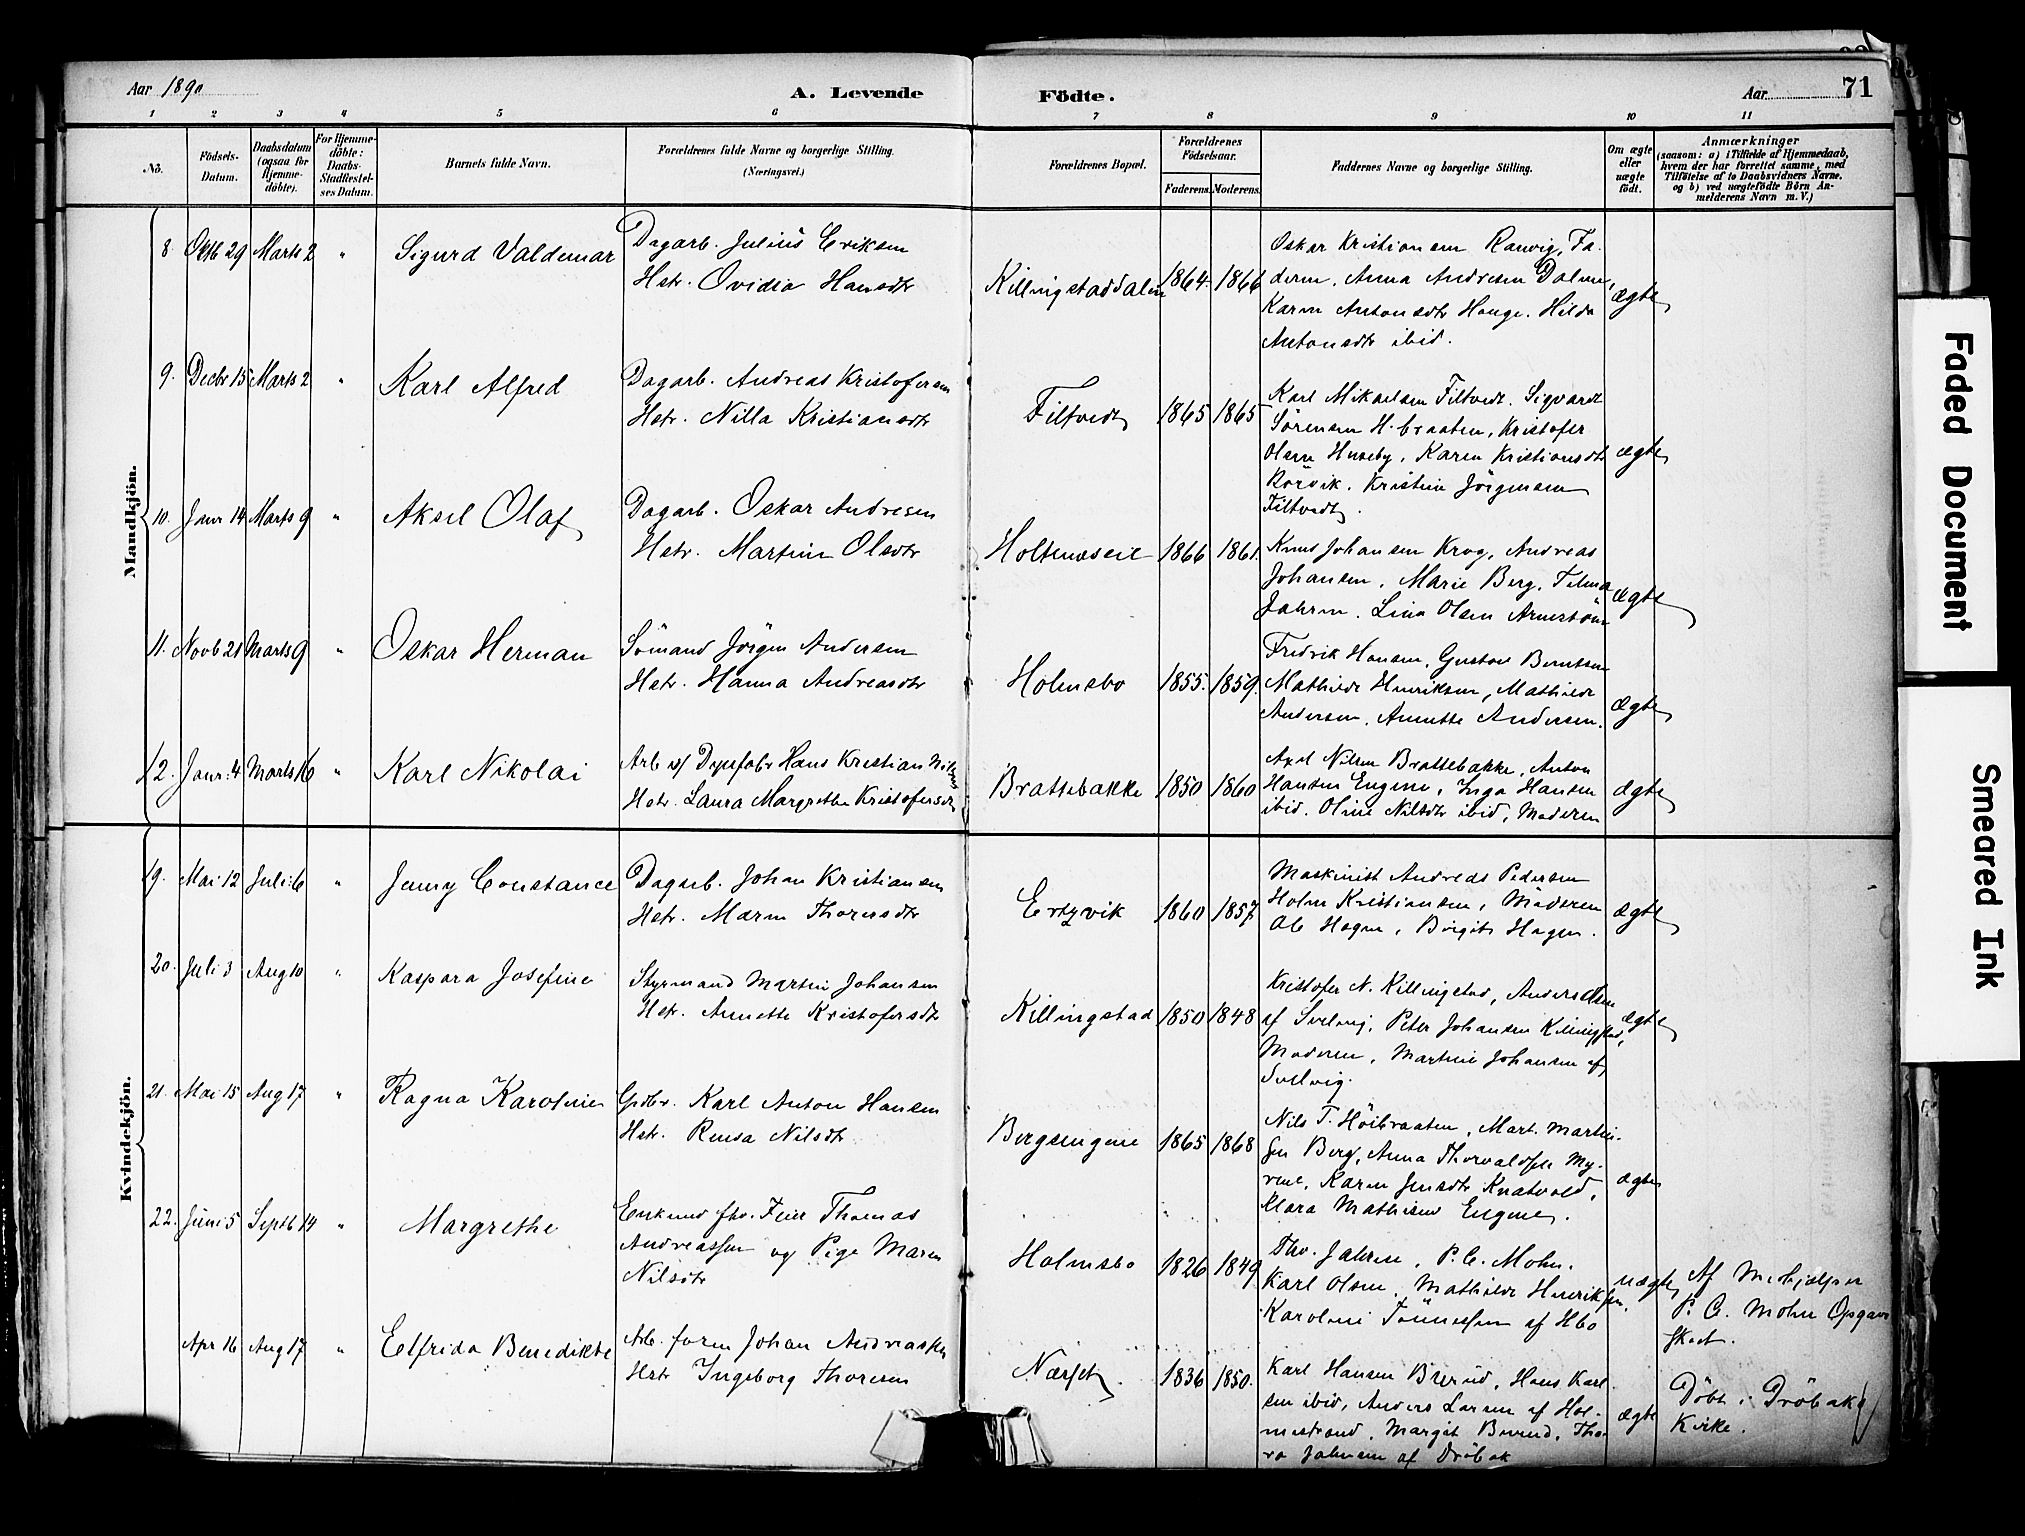 Aar 1890
A. Levende Födte.
Aar
71
1 2 3 4 5 6 7 8 9 10 11
No.
Födsels-Datum.
Daabsdatum (ogsaa for Hjemme-döbte).
For Hjemme-döbte: Daabs-Stadfæstel-ses Datum.
Barnets fulde Navn.
Forældrenes fulde Navne og borgerlige Stilling. (Næringsvei.)
Forældrenes Bopæl.
Forældrenes Födselsaar.
Faderens. Moderens.
Faddernes Navne og borgerlige Stilling.
Om ægte eller uægte födt.
Anmærkninger
(saasom: a) i Tilfælde af Hjemmedaab, hvem der har forrettet samme, med Tilföielse af to Daabsvidners Navne, og b) ved uægtefödte Börn An-melderens Navn m. V.)
Mandkjön.
8. Oktb 29 Marts 2 " Sigurd Valdemar
Dagarb. Julius Eriksen
Hstr. Ovidia Hansdtr
Killingstaddalen 1864. 1866
Oskar Kristiansen Rauvig, Fa-
deren, Anna Andresen Dalen,
Karen Antonsdtr Hauge. Hilda
Antonsdtr ibid.
ægte
9. Decbr 15 Marts 2 " Karl Alfred
Dagarb. Andreas Kristofersen
Hstr. Nilla Kristiansdtr
Filtvedt 1865 1865
Karl Mikaelsen Filtvedt. Sigvardt
Sörensen H.braaten, Kristofer
Olsen Huseby, Karen Kristiansdtr
Rörvik. Kristine Jörgensen
Filtvedt.
ægte
10. Janr 14 Marts 9 " Aksel Olaf
Dagarb. Oskar Andresen
Hstr. Martine Olsdtr
Holtenæseie 1866 1861.
Knus Johansen Krog, Andreas
Johansen, Marie Berg,
Jahren. Lina Olsen
ægte
11. Novb 21 Marts 9 " Oskar Herman
Sömand Jörgen Andersen
Hstr. Hanna Andreasdtr
Holmsbo 1855. 1859.
Fredrik Hansen, Gustav Berntsen
Mathilde Henriksen, Mathilde
Andersen, Annette Andersen.
ægte
12. Janr. 4 Marts 16 " Karl Nikolai
Arb v/ Dynfabr Hans Kristian Nilsen
Hstr. Laura Margrethe Kristofersdtr
Brattebakke 1850 1860
Axel Nilsen Brattebakke, Anton
Hansen Engene, Inga Hansen
ibid. Oline Nilsdtr ibid, Moderen
ægte
Kvindekjön.
19. Mai 12 Juli 6 " Jenny Constance
Dagarb. Johan Kristiansen
Hstr. Maren Thoresdtr
Ertzvik 1860 1857.
Maskinist Andreas Pedersen
Holm Kristiansen, Moderen
Ole Hagen, Birgit Hagen.
ægte
20. Juli 3 Aug 10 " Kaspara Josefine
Styrmand Martin Johansen
Hstr. Annette Kristofersdtr
Killingstad 1850 1848
Kristofer N. Killingstad, Anders Olsen
af Svelvig, Peter Johansen Killingstad,
Moderen, Martine Johansen af
Svelvig.
ægte
21. Mai 15 Aug 17 " Ragna Karoline
Gdbr. Karl Anton Hansen
Hstr. Rensa Nilsdtr
Bergsengene 1865 1868
Nils T. Höibraaten, Mart. Martin-
sen Berg, Anna Thorvaldsen My-
rene, Karen Jensdtr Knatvold,
Klara Mathisen Engene.
ægte
22. Juni 5 Septb 14 " Margrethe
Enkemd fhv. Feier Thomas
Andreassen og Pige Maren
Nilsdtr
Holmsbo 1826 1849
Thv. Jahren, P. C. Mohn.
Karl Olsen. Mathilde Henriksen.
Karoline Tönnesen af Hbo
uægte
Af Medhjelper
P. C. Mohn Opgave
sket.
Apr 16 Aug 17 " Elfrida Benedikte
Arb. foren Johan Andreassen
Hstr Ingeborg Thoresen
Næsset. 1836 1850.
Karl Hansen Bærud, Hans Karl-
sen ibid, Anders Larsen af Hol-
mestrand, Margit Berud, Tho-
ra Johnsen af Dröbak
ægte
Döbt i Dröbaks
Kirke.
Faded Document
Smeared Ink